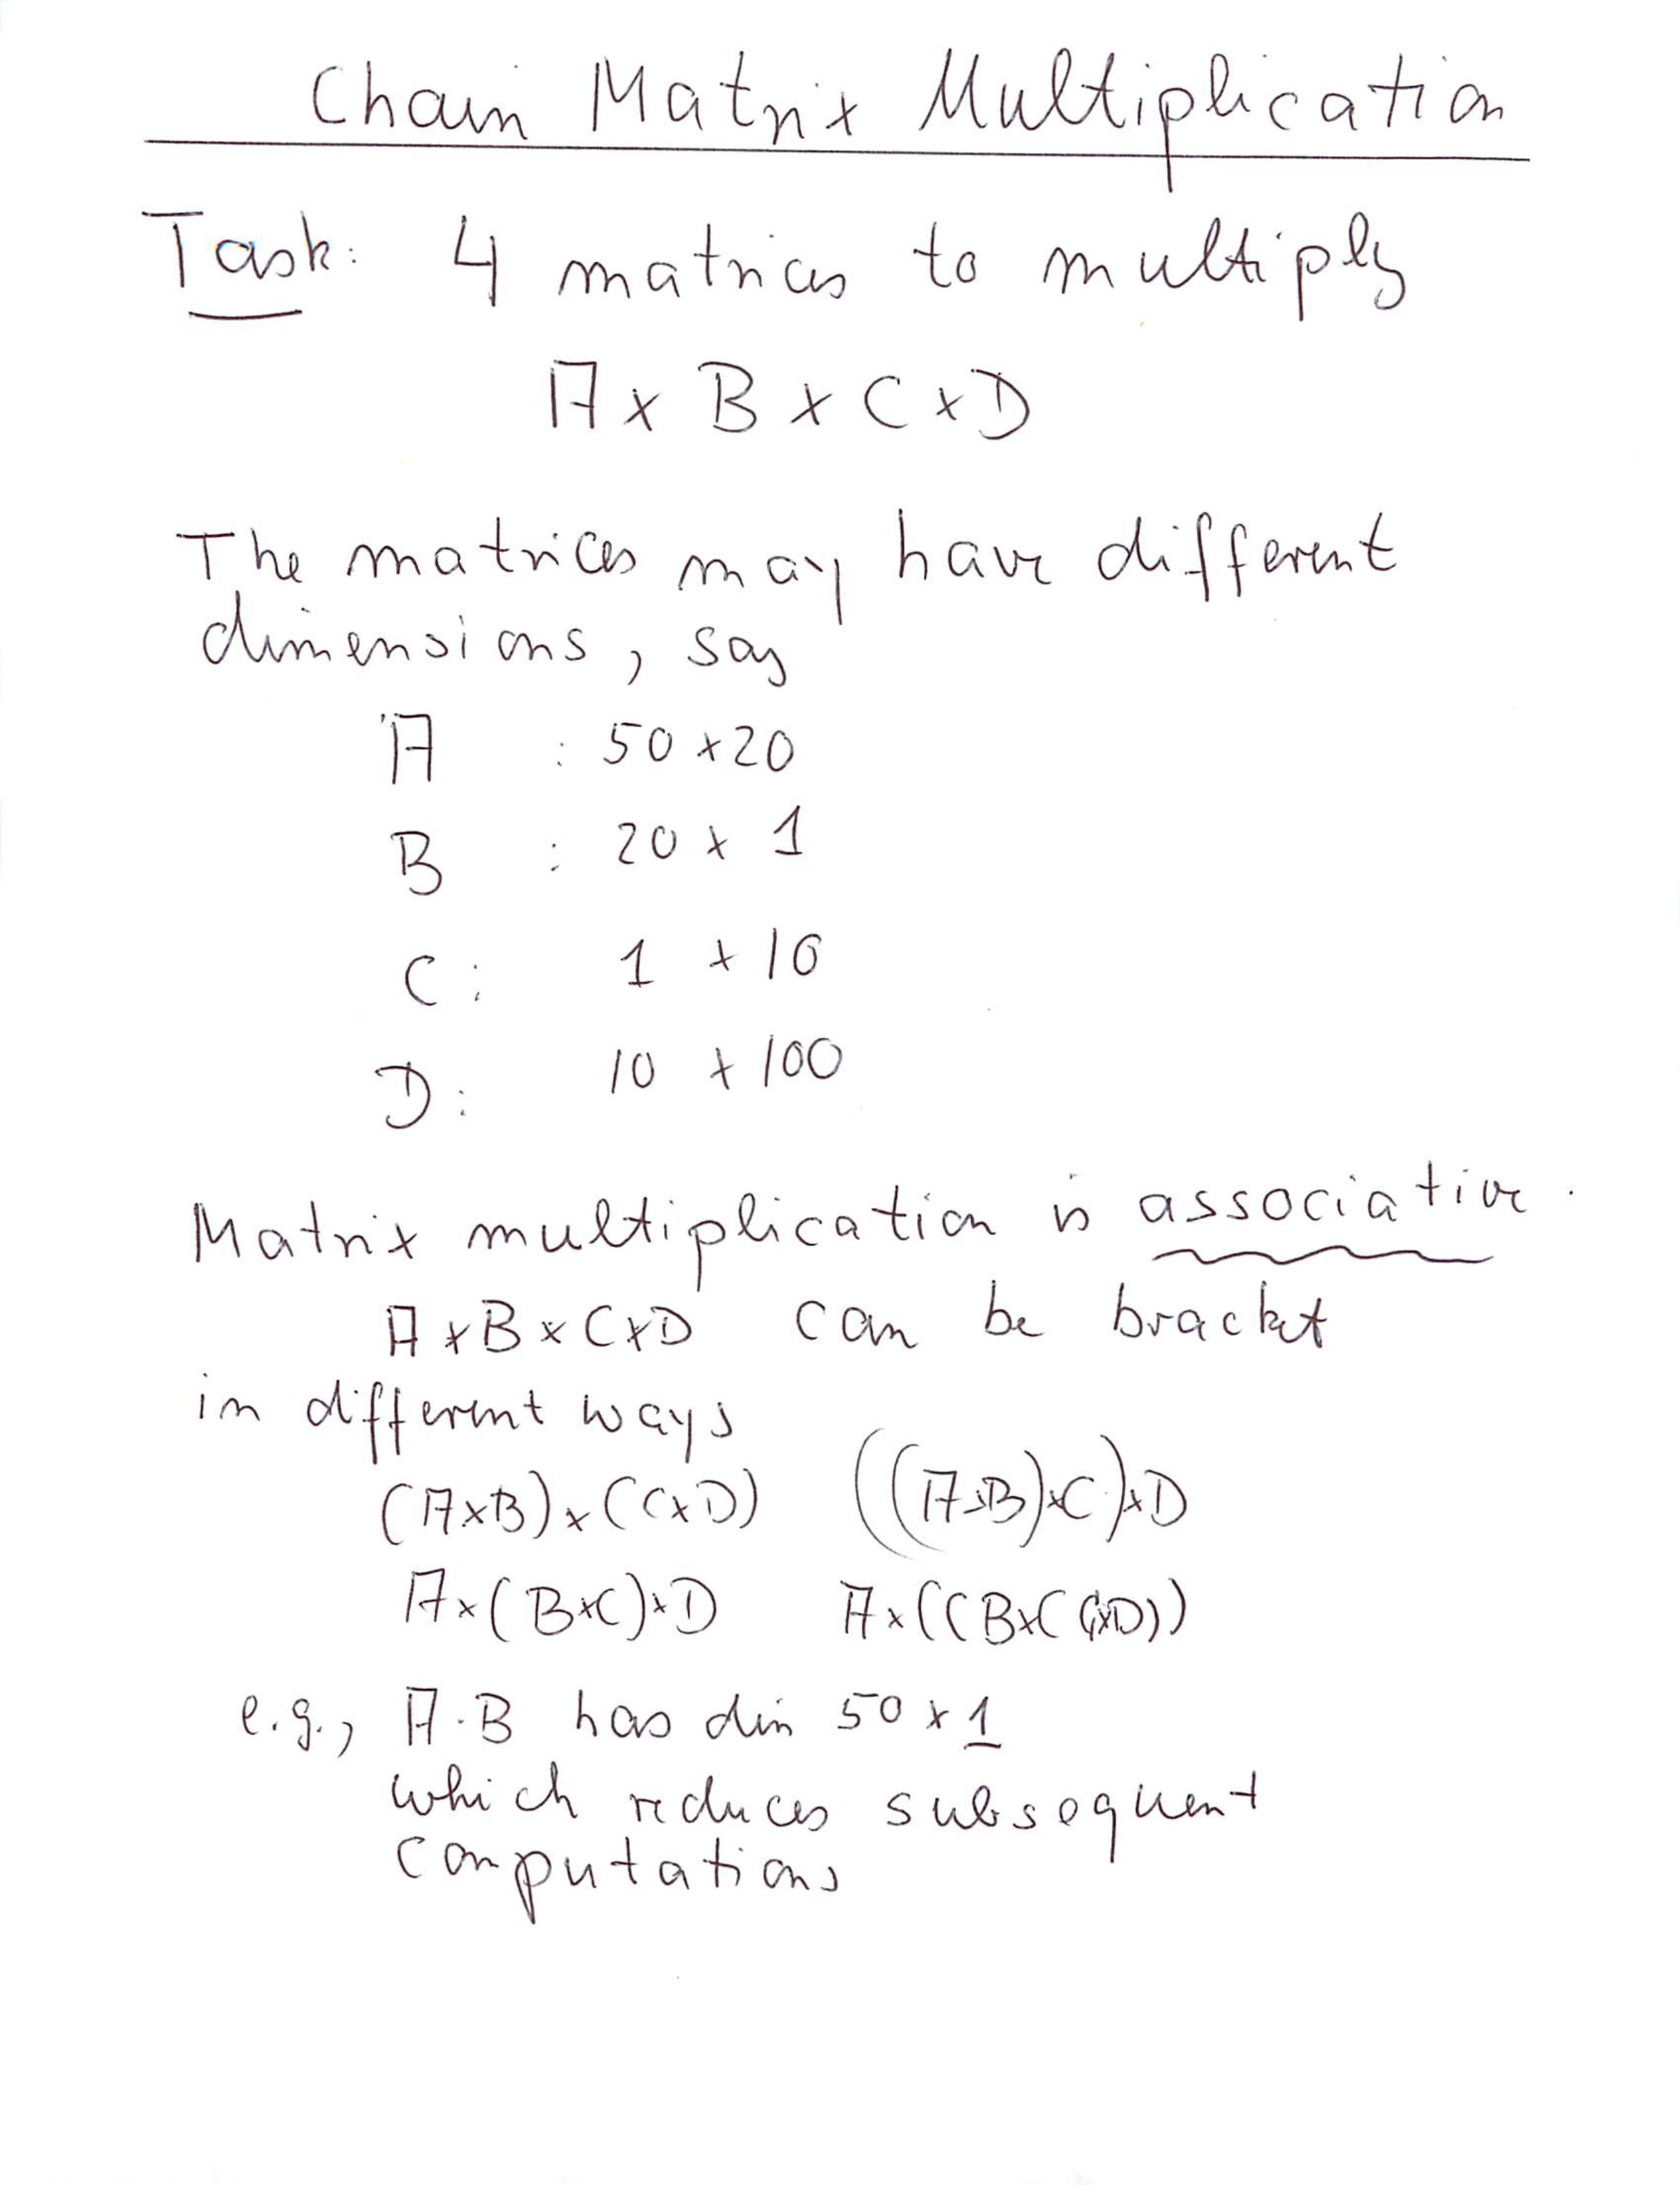 Chain Matrix Multiplication
Task: 4 matrices to multiply
A x B x C x D
The matrices may have different
dimensions, say
A : 50 x 20
B : 20 x 1
C : 1 x 10
D : 10 x 100
Matrix multiplication is associative.
A x B x C x D can be bracket
in different ways
(A x B) x (C x D) ((A x B) x C) x D
A x (B x C) x D A x ((B x (C x D))
e.g., A · B has dim 50 x 1
which reduces subsequent
computations